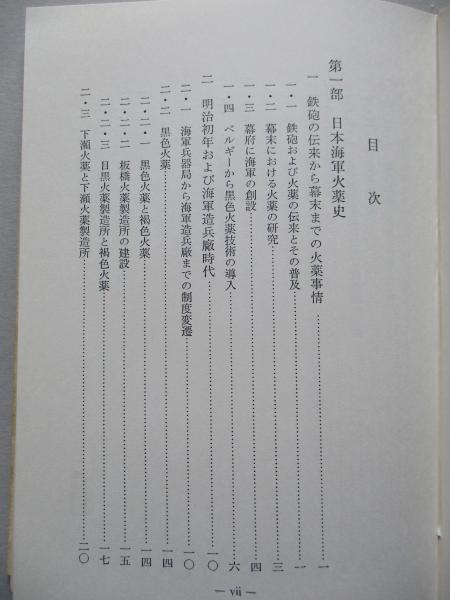 目次
第一部 日本海軍火薬史
一 鉄砲の伝来から幕末までの火薬事情……一
一・一 鉄砲および火薬の伝来とその普及……一
一・二 幕末における火薬の研究……三
一・三 幕府に海軍の創設……四
一・四 ベルギーから黒色火薬技術の導入……六
二 明治初年および海軍造兵廠時代……一〇
二・一 海軍兵器局から海軍造兵廠までの制度変遷……一〇
二・二 黒色火薬……一四
二・二・一 黒色火薬と褐色火薬……一四
二・二・二 板橋火薬製造所の建設……一五
二・二・三 目黒火薬製造所と褐色火薬……一七
二・三 下瀬火薬と下瀬火薬製造所……二〇
— vii —